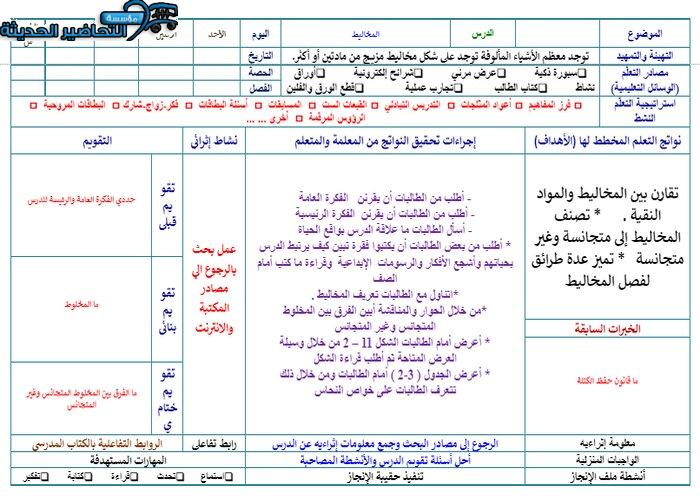 مؤسسة
التحاضير الحديثة
الموضوع
الدرس
المخاليط
اليوم
الأحد
التهيئة والتمهيد
توجد معظم الأشياء المألوفة توجد على شكل مخاليط مزيج من مادتين أو أكثر.
التاريخ
مصادر التعلم
(الوسائل التعليمية)
سبورة ذكية
عرض مرئي
شرائح إلكترونية
أوراق
نشاط
كتاب الطالب
تجارب عملية
قطع الورق والفلين
الحصة
الفصل
استراتيجية التعلم
النشط
فرز المفاهيم
أعواد المثلجات
التدريس التبادلي
القبعات الست
المسابقات
أسئلة البطاقات
فكر.زواج.شارك
البطاقات المروحية
الرؤوس المرقمة
أخرى ... ...
نواتج التعلم المخطط لها (الأهداف)
إجراءات تحقيق النواتج من المعلمة والمتعلم
نشاط إثرائى
التقويم
تقارن بين المخاليط والمواد
النقية . * تصنف
المخاليط إلى متجانسة وغير
متجانسة * تميز عدة طرائق
لفصل المخاليط
الخبرات السابقة
ما قانون حفظ الكتلة
- أطلب من الطالبات أن يقرئن الفكرة العامة
- أطلب من الطالبات أن يقرئن الفكرة الرئيسية
- أسأل الطالبات ما علاقة الدرس بواقع الحياة
* أطلب من بعض الطالبات أن يكتبوا فقرة تبين كيف يرتبط الدرس
بحياتهم وأشجع الأفكار والرسومات الإبداعية وقراءة ما كتب أمام
الصف
*اتناول مع الطالبات تعريف المخاليط .
*من خلال الحوار والمناقشة أبين الفرق بين المخلوط
المتجانس وغير المتجانس
* أعرض أمام الطالبات الشكل 11 – 2 من خلال وسيلة
العرض المتاحة ثم أطلب قراءة الشكل
* أعرض الجدول ( 3-2 ) أمام الطالبات ومن خلال ذلك
تتعرف الطالبات على خواص النحاس
عمل بحث
بالرجوع الي
مصادر
المكتبة
والانترنت
تقو
يم
قبلى
حددي الفكرة العامة والرئيسة للدرس
تقو
يم
بنائى
ما المخلوط
تقو
يم
ختام
ي
ما الفرق بين المخلوط المتجانس وغير
المتجانس
معلومة إثراءيه
الرجوع إلى مصادر البحث وجمع معلومات إثراءيه عن الدرس
رابط تفاعلى
الروابط التفاعلية بالكتاب المدرسي
الواجبات المنزلية
أحل أسئلة تقويم الدرس والأنشطة المصاحبة
المهارات المستهدفة
أنشطة ملف الإنجاز
تنفيذ حقيبة الإنجاز
استماع
تحدث
قراءة
كتابة
تفكير